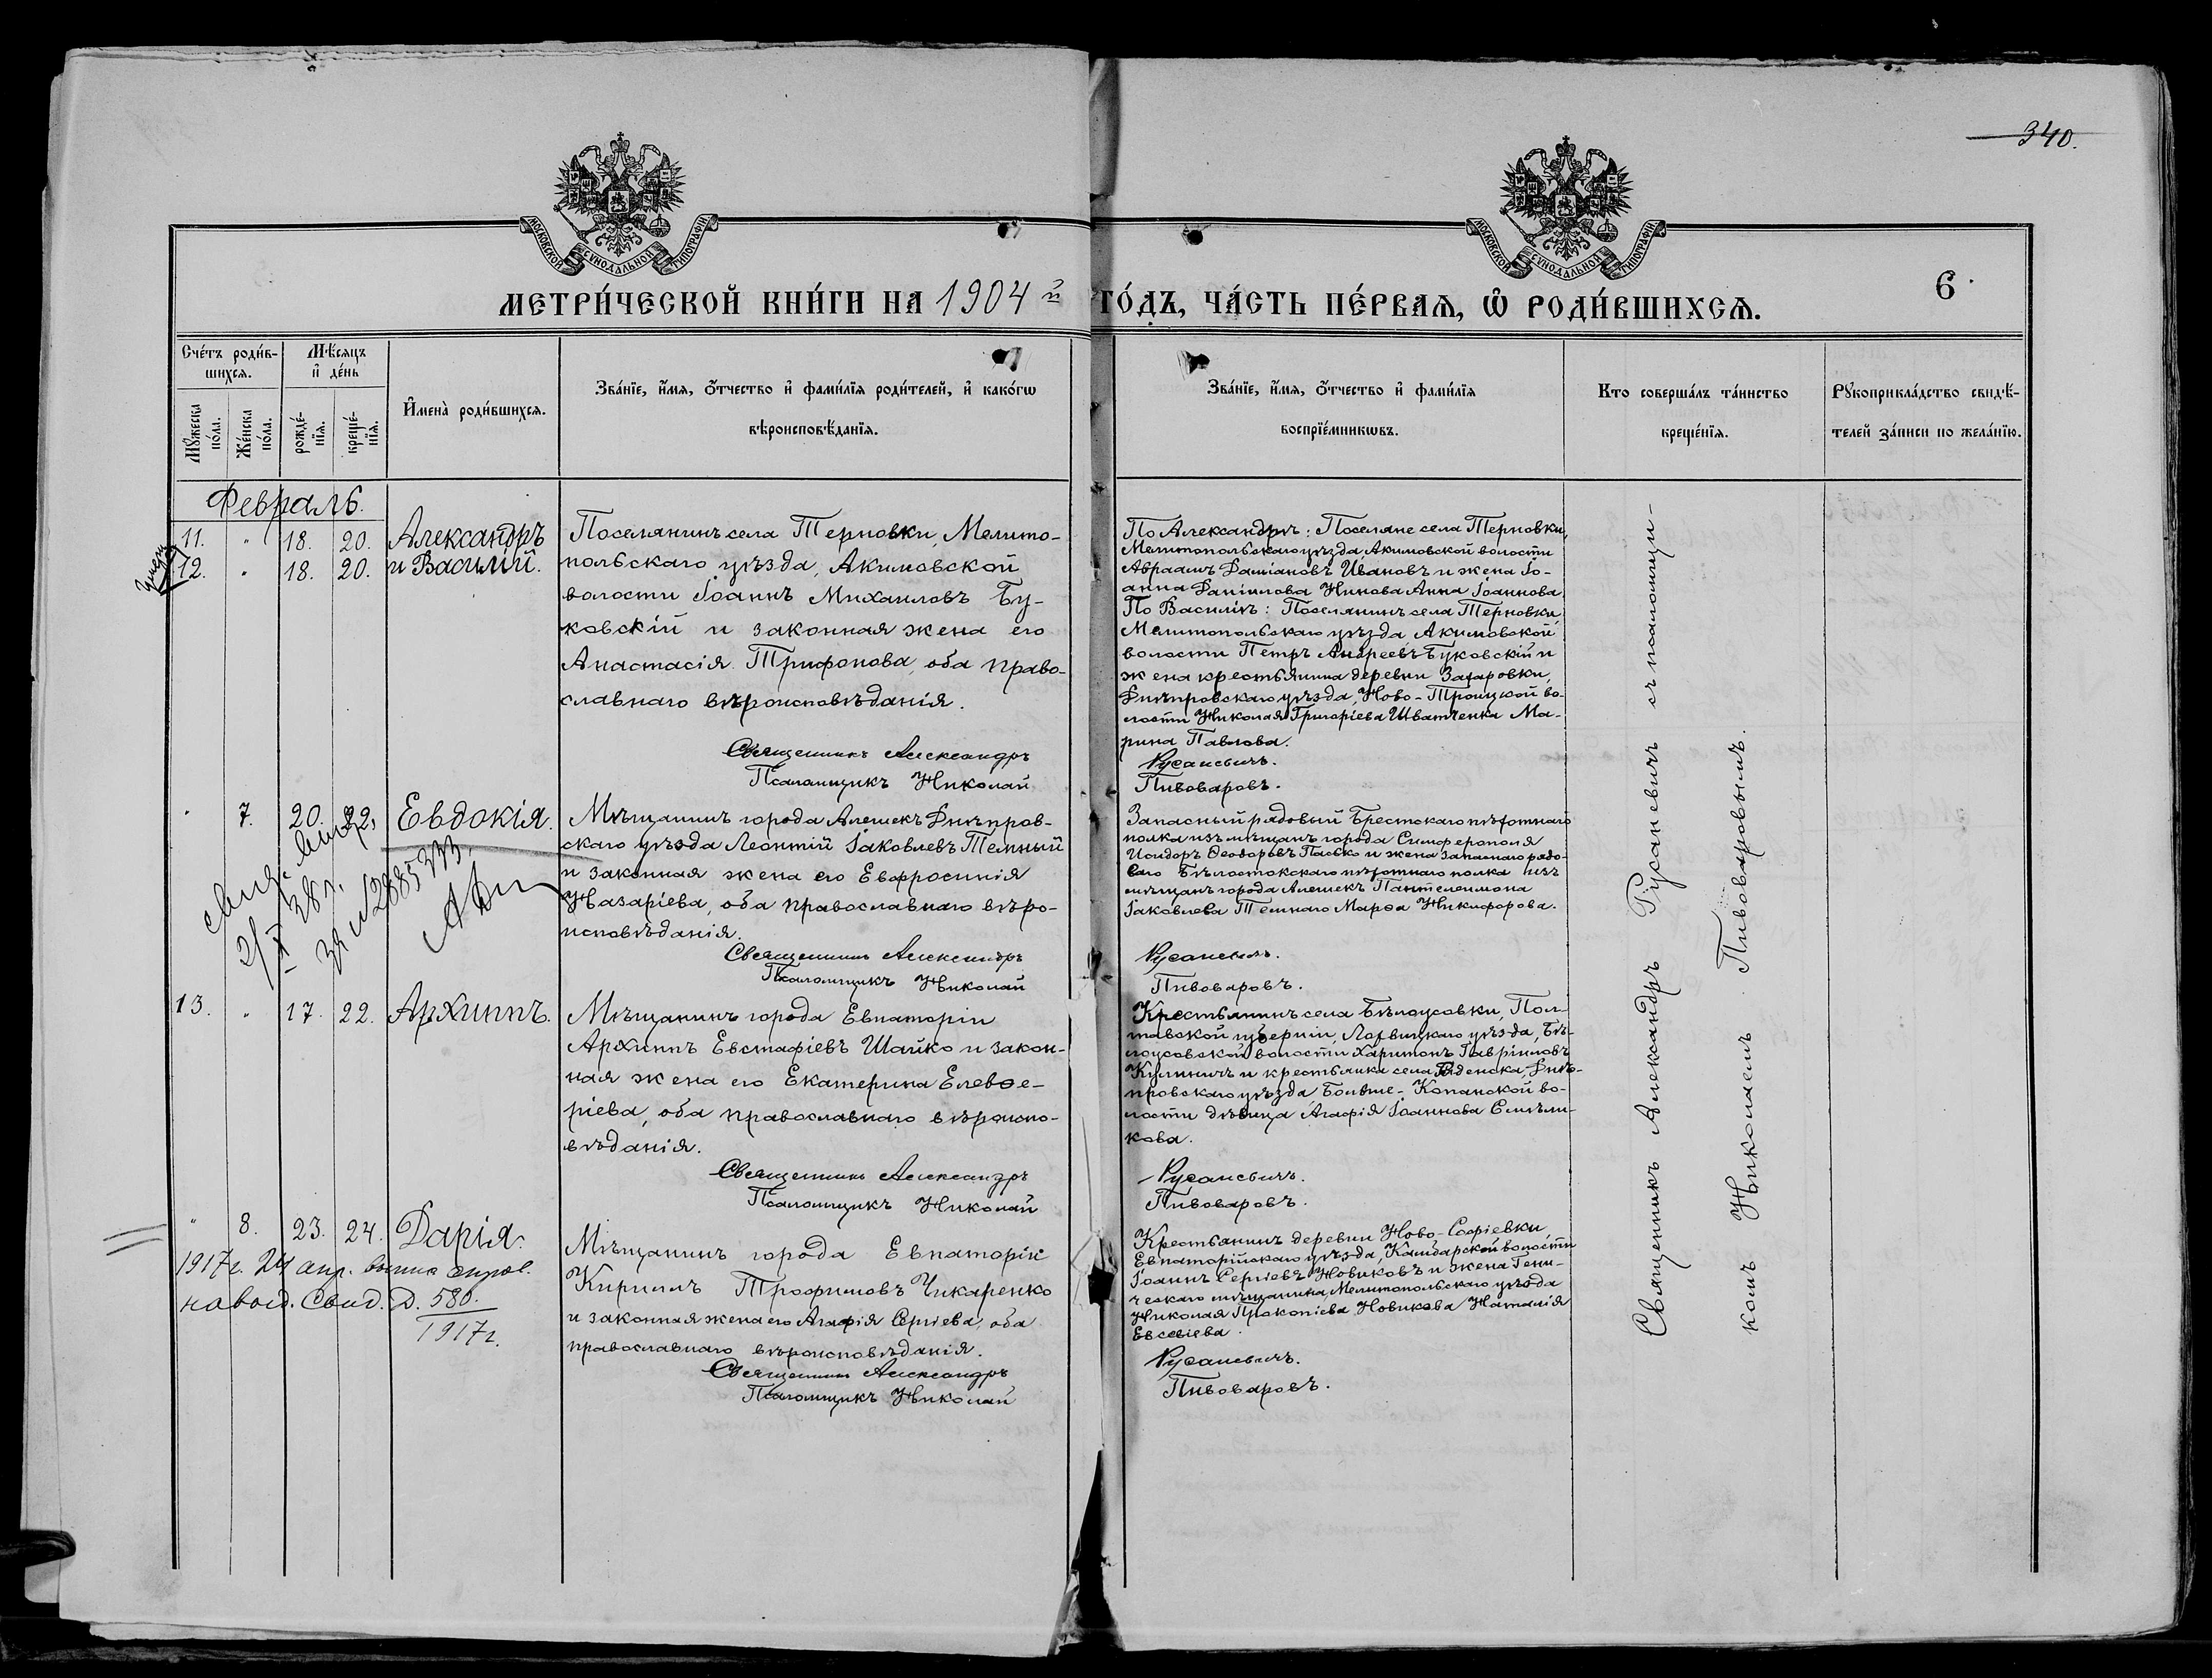 340.
МОСКОВСКОЙ СѴНОДАЛЬНОЙ ТИПОГРАФІИ
МОСКОВСКОЙ СѴНОДАЛЬНОЙ ТИПОГРАФІИ
6.
МЕТРИ́ЧЕСКОЙ КНИ́ГИ НА 1904 й ГО́ДЪ, ЧА́СТЬ ПЕ́РВАѦ, Ѿ РОДИ́ВШИХСѦ.
Сче́тъ роди́в-
шихсѧ.
Мѣ́сяцъ
и҆ де́нь
Мꙋ́жеска по́ла.
Же́нска по́ла.
рожде́-
нїѧ.
креще́-
нїѧ.
И҆мена̀ роди́вшихсѧ.
Зва́нїе, и҆́мѧ, ѻ҆́тчество и҆ фами́лїѧ роди́телей, и҆ како́гѡ
вѣроисповѣ́данїѧ.
Зва́нїе, и҆́мѧ, ѻ҆́тчество и҆ фами́лїѧ
воспрїе́мникѡвъ.
Кто соверша́лъ та́инство
креще́нїѧ.
Рꙋкоприкла́дство свидѣ́-
телей за́писи по жела́нїю.
Февраль.
11. " 18. 20. Александръ
12. " 18. 20. и Василій.
Поселянинъ села Терновки, Мелито-
польскаго уѣзда, Акимовской
волости Іоаннъ Михаиловъ Бу-
ковскій и законная жена его
Анастасія Трифонова, оба право-
славнаго вѣроисповѣданія.
Священникъ Александръ
Псаломщикъ Николай
По Александръ: Поселяне села Терновки,
Мелитопольскаго уѣзда, Акимовской волости
Авраамъ Даміановъ Ивановъ и жена Іо-
анна Даніилова Нинова Анна Іоаннова
По Василіѣ: Поселянинъ села Терновки,
Мелитопольскаго уѣзда Акимовской
волости Петръ Андреевъ Буковскій и
жена крестьянина деревни Захаровки,
Днѣпровскаго уѣзда, Ново-Троицкой во-
лости Николая Григоріева Шватченка Ма-
рина Павлова.
Русаневичъ.
Пивоваровъ.
" 7. 20. 22. Евдокія.
Мѣщанинъ города Алешекъ Днѣпров-
скаго уѣзда Леонтій Іаковлевъ Темный
и законная жена его Евфросинія
Назаріева, оба православнаго вѣро-
исповѣданія.
Священникъ Александръ
Псаломщикъ Николай
Запасный рядовый Брестскаго пѣхотнаго
полка изъ мѣщанъ города Симферополя
Исидоръ Ѳеодоровъ Пасько и жена запаснаго рядо-
ваго Бѣлостокскаго пѣхотнаго полка изъ
мѣщанъ города Алешекъ Пантелеимона
Іаковлева Темнаго Марѳа Никифорова.
Русаневичъ.
Пивоваровъ.
2/X 38 г.
13. " 17. 22. Архиппъ.
Мѣщанинъ города Евпаторіи
Архиппъ Евстафіевъ Шайко и закон-
ная жена его Екатерина Елевѳе-
ріева, оба православнаго вѣроиспо-
вѣданія.
Священникъ Александръ
Псаломщикъ Николай
Крестьянинъ села Бѣлоусовки, Пол-
тавской губерніи, Лохвицкаго уѣзда, Бѣ-
лоусовской волости Харитонъ Гавріиловъ
Кулиничъ и крестьянка села Днѣ-
провскаго уѣзда Больше-Копанской во-
лости дѣвица Агафія Іоаннова Смѣли-
кова.
Русаневичъ.
Пивоваровъ.
" 8. 23. 24. Дарія.
1917г. 24 апр.
Свид. Д. 580.
1917г.
Мѣщанинъ города Евпаторіи
Кириллъ Трофимовъ Чикаренко
и законная жена его Агафія Сергіева, оба
православнаго вѣроисповѣданія.
Священникъ Александръ
Псаломщикъ Николай
Крестьянинъ деревни Ново-Софіевки,
Евпаторійскаго уѣзда, волости
Іоаннъ Сергіевъ Новиковъ и жена Гени-
ческаго мѣщанина Мелитопольскаго уѣзда
Николая Прокопіева Новикова Наталія
Евсевіева.
Русаневичъ.
Пивоваровъ.
Священникъ Александръ Русаневичъ съ псаломщи-
комъ Николаемъ Пивоваровымъ.